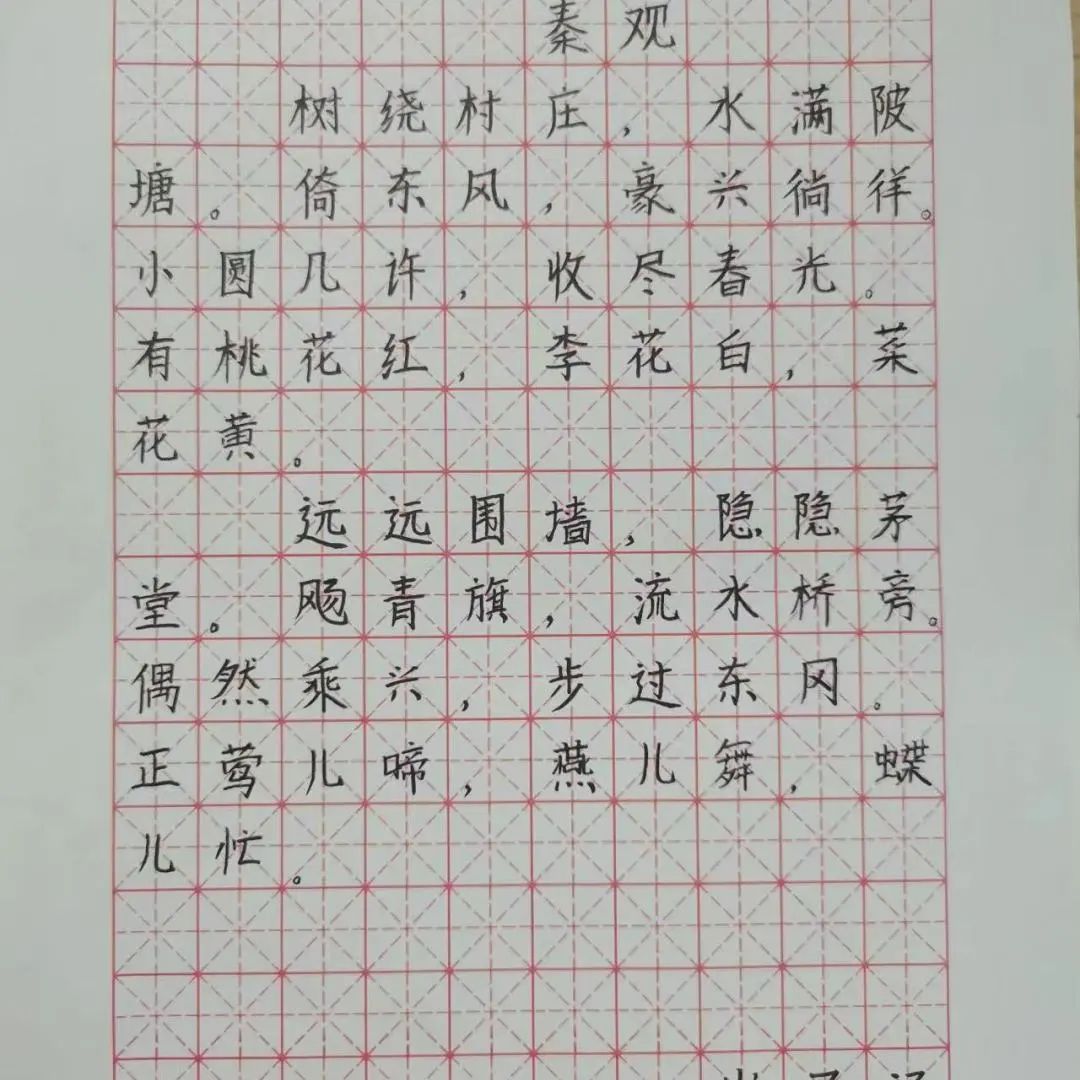 秦观
树绕村庄，水满陂
塘。倚东风，豪兴徜徉。
小圆几许，收尽春光。
有桃花红，李花白，菜
花黄。
远远围墙，隐隐茅
堂。飏青旗，流水桥旁。
偶然乘兴，步过东冈。
正莺儿啼，燕儿舞，蝶
儿忙。